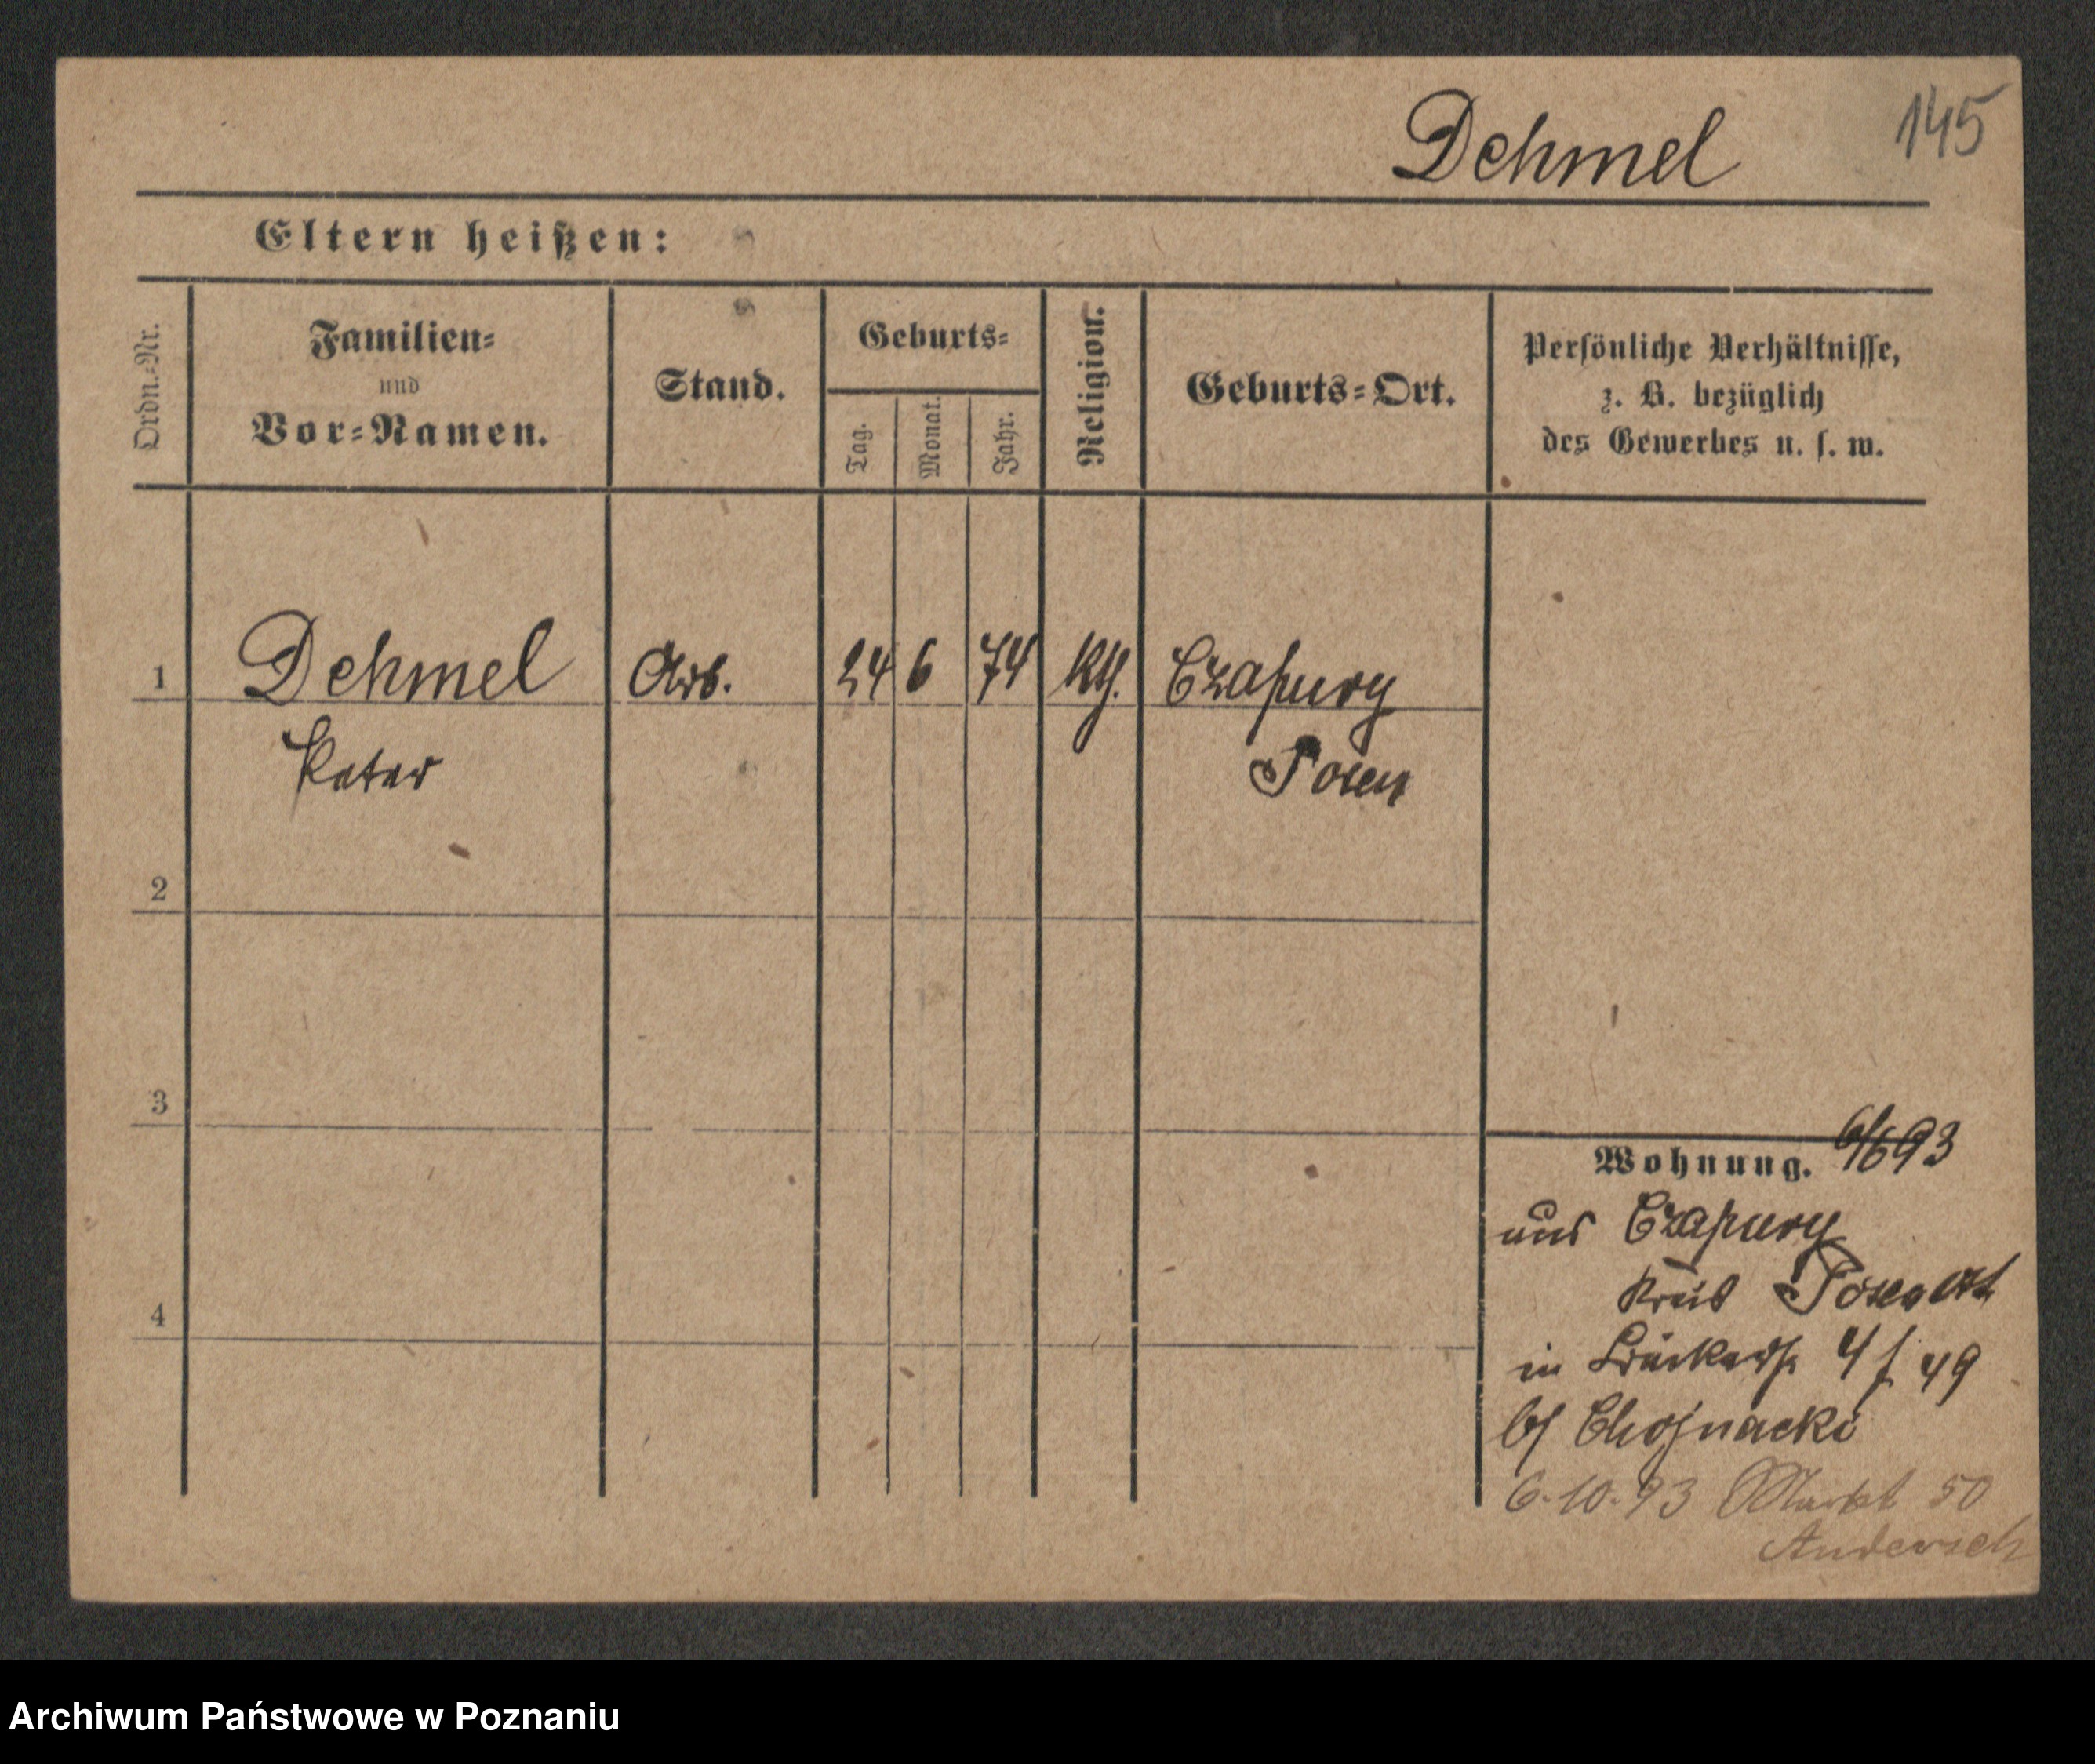 Dehmel
145
Eltern heißen:
Ordn.-Nr.
Familien-
und
Vor-Namen.
Stand.
Geburts-
Tag.
Monat.
Jahr.
Religion.
Geburts-Ort.
Persönliche Verhältnisse,
z. B. bezüglich
des Gewerbes u. s. w.
1 Dehmel Arb. 24 6 74 kth. Czapury
Peter Posen
2
3
4
Wohnung. 6/6 93
aus Czapury
Kreis Posen
in 4 f 49
b/ Chojnacki
6.10.93 Markt 50
Andersch
Archiwum Państwowe w Poznaniu